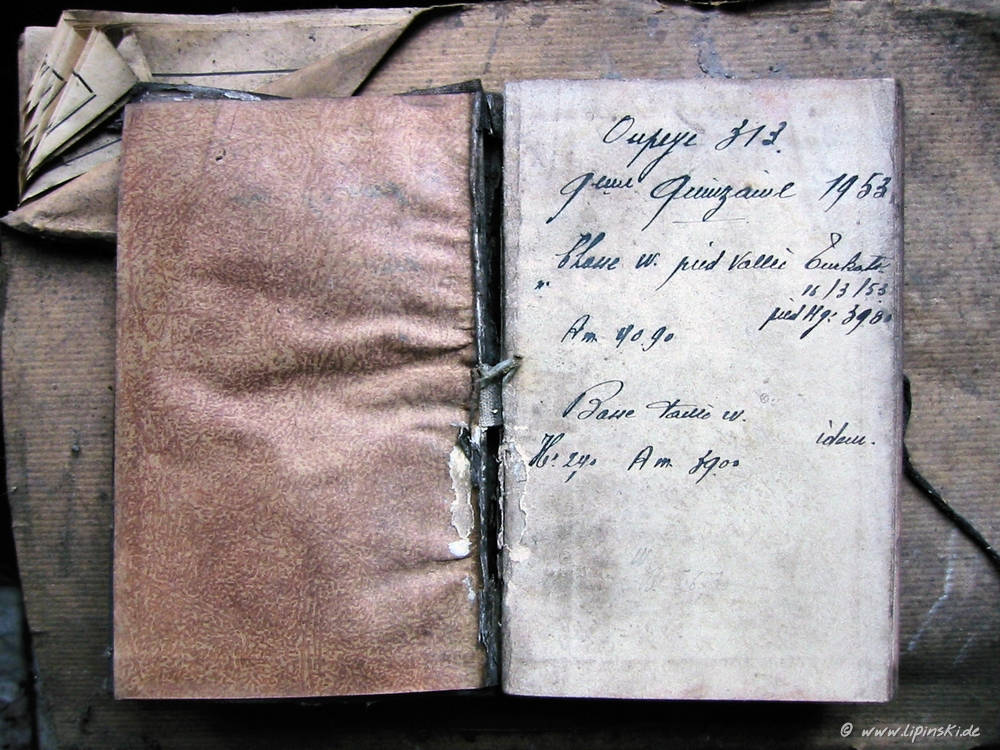 Oupeye 313.
9eme Quinzaine 1953
Chasse w. pied Vallée
"
16/3/53
pied Hg: 3980
Am 40.90
Basse taille w.
idem.
H: 240 Am 3900
© www.lipinski.de